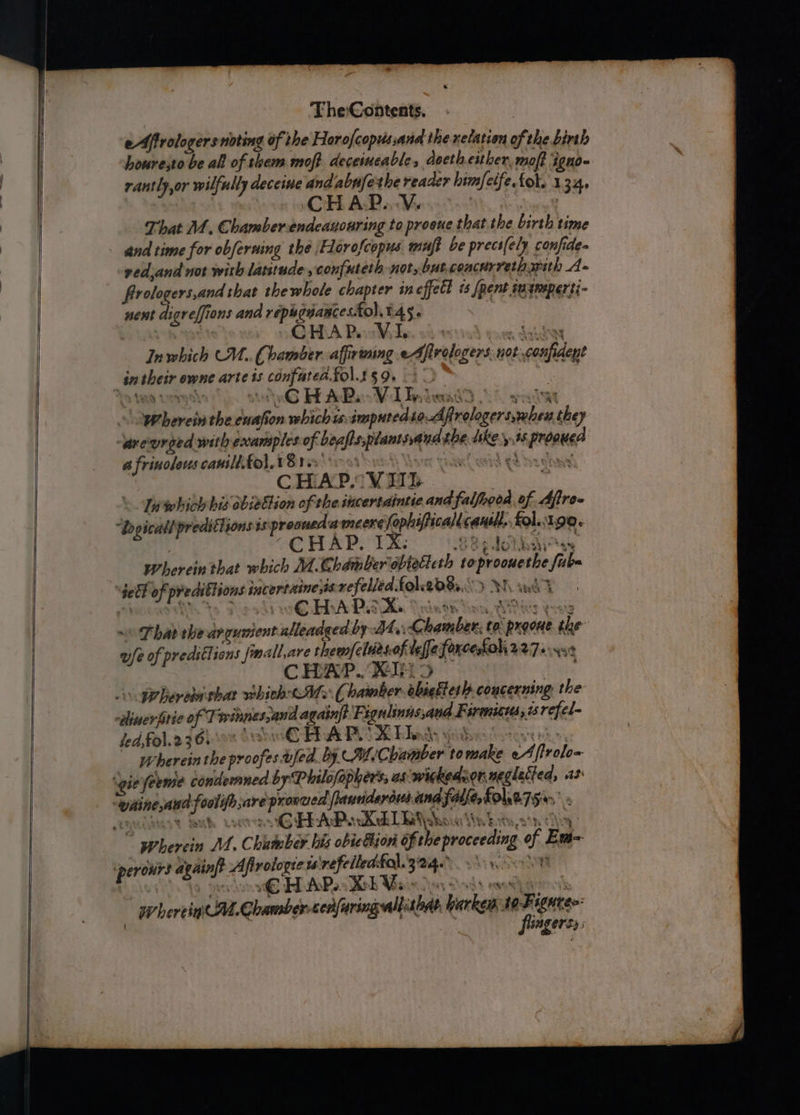 The Contents.
Astrologers noting of the Horoscopus, and the relation of the birth
houres, to be all of them most deceiueable, doeth either, most igno-
rantly, or wilfully deceiue and abuse the reader himselfe. fol. 134.
CHAP. V.
That M. Chamber endeauouring to prooue that the birth time
and time for obseruing the Horoscopus must be precisely conside-
red, and not with latitude, confuteth not, but concurreth with A-
strologers, and that the whole chapter in effect is spent in imperti-
nent digressions and repugnances. fol. 145.
CHAP. VI.
In which M. Chamber affirming Astrologers not confident
in their owne arte is confuted. fol. 159.
CHAP. VII.
Wherein the euasion which is imputed to Astrologers, when they
are vrged with examples of beasts, plants, and the like, is prooued
a friuolous cauill. fol. 181.
CHAP. VIII.
In which his obiection of the incertaintie and falshood of Astro-
logicall predictions is prooued a meere sophisticall cauill. fol. 190.
CHAP. IX.
Wherein that which M. Chamber obiecteth to prooue the sub-
iect of predictions incertaine, is refelled. fol. 208.
CHAP. X.
That the argument alleadged by M. Chamber, to prooue the
vse of predictions small, are themselues of lesse force. fol. 227.
CHAP. XI.
Wherein that which M. Chamber obiecteth concerning the
diuersitie of Twinnes, and against Figulinus, and Firmicus, is refel-
led, fol. 236.
CHAP. XII.
Wherein the proofes vsed by M. Chamber to make Astrolo-
gie seeme condemned by Philosophers, as wicked, or neglected, as
vaine, and foolish, are prooued slaunderous and false, fol. 275.
CHAP. XIII.
Wherein M. Chamber his obiection of the proceeding of Em-
perours against Astrologie is refelled. fol. 324.
CHAP.
Wherein M. Chamber censuring all that harken to Figure-
flingers,